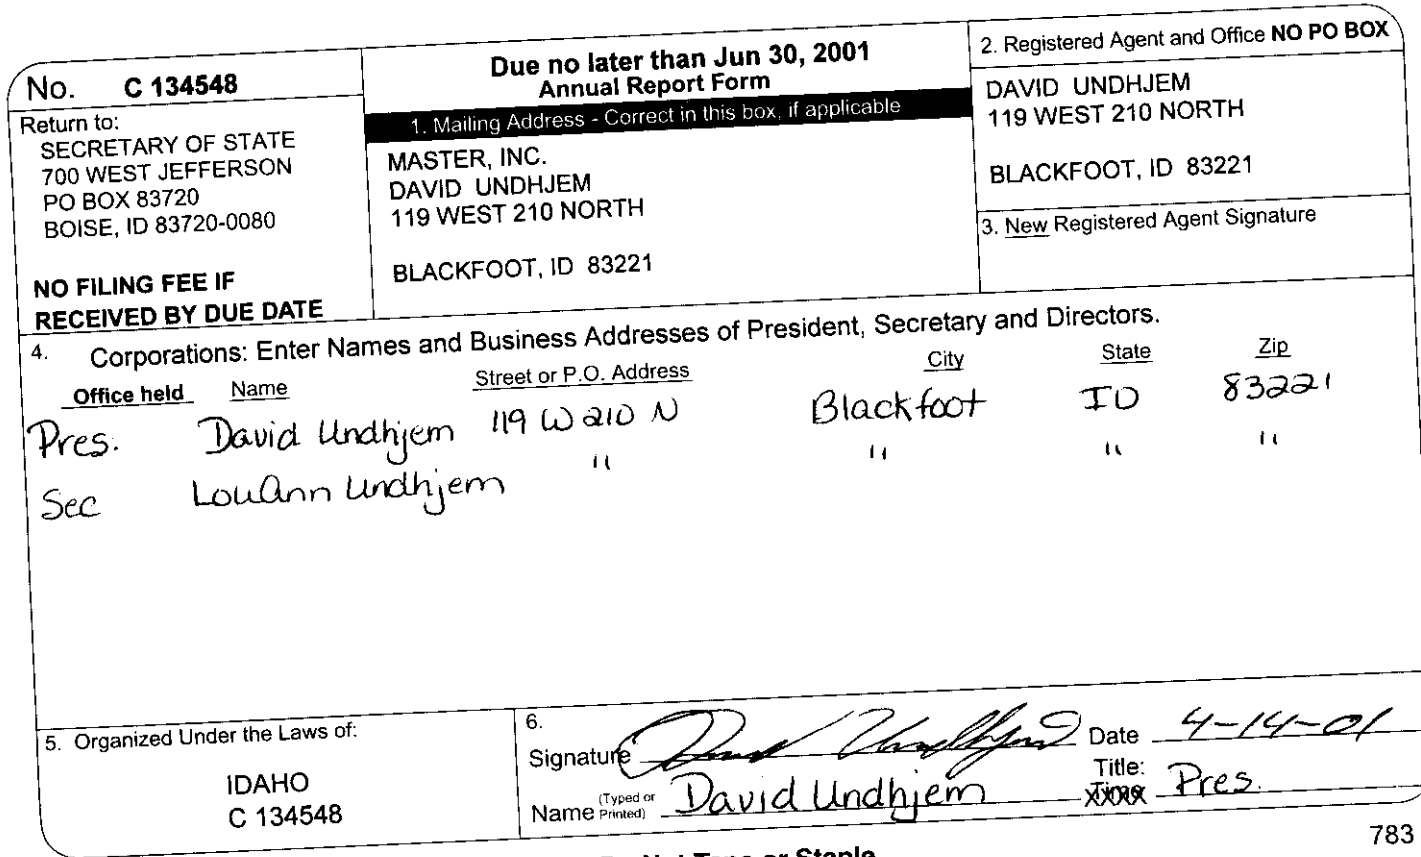 No. C 134548
Return to:
SECRETARY OF STATE
700 WEST JEFFERSON
PO BOX 83720
BOISE, ID 83720-0080
NO FILING FEE IF
RECEIVED BY DUE DATE
Due no later than Jun 30, 2001
Annual Report Form
1. Mailing Address - Correct in this box, if applicable
MASTER, INC.
DAVID UNDHJEM
119 WEST 210 NORTH
BLACKFOOT, ID 83221
2. Registered Agent and Office NO PO BOX
DAVID UNDHJEM
119 WEST 210 NORTH
BLACKFOOT, ID 83221
3. New Registered Agent Signature
4. Corporations: Enter Names and Business Addresses of President, Secretary and Directors.
Office held Name Street or P.O. Address City State Zip
Pres. David Undhjem 119 W 210 N Blackfoot ID 83221
Sec LouAnn Undhjem " " " "
5. Organized Under the Laws of:
IDAHO
C 134548
6.
Signature David Undhjem Date 4-14-01
Title:
Name (Typed or Printed) David Undhjem Pres.
783